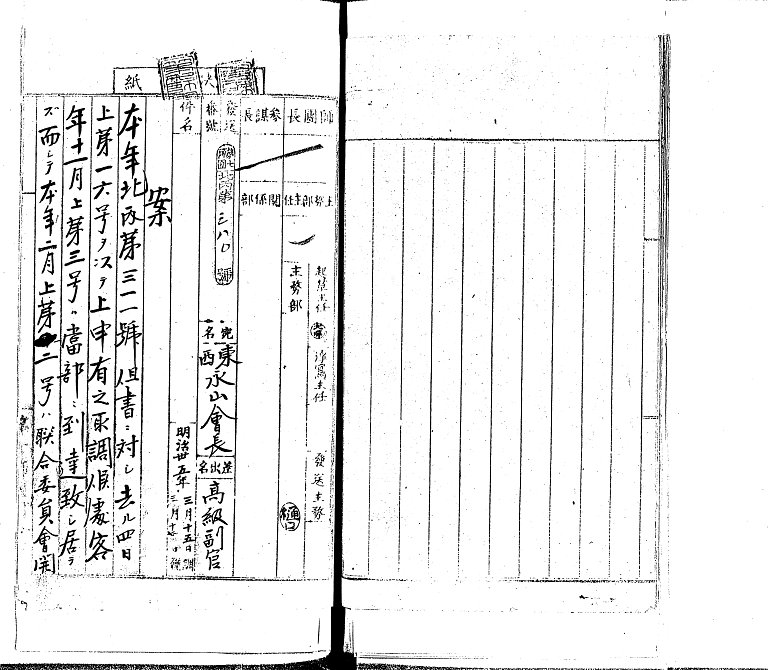 紙
師團長
參謀長
發送番號
第三八〇號
件名
主務部主任
關係部
起草主任
淨寫主任
發送主務
主務部
樋口
宛名
東西永山會長
差出名
高級副官
明治卅五年
三月十五日
三月十
案
本年北丙第三一一號但書ニ対シ去ル四日
上第一六号ヲ以テ上申有之取調候處客
年十一月上第三号ハ當部ニ到達致シ居ラ
ズ而シテ本年二月上第二号ハ聯合委員會開